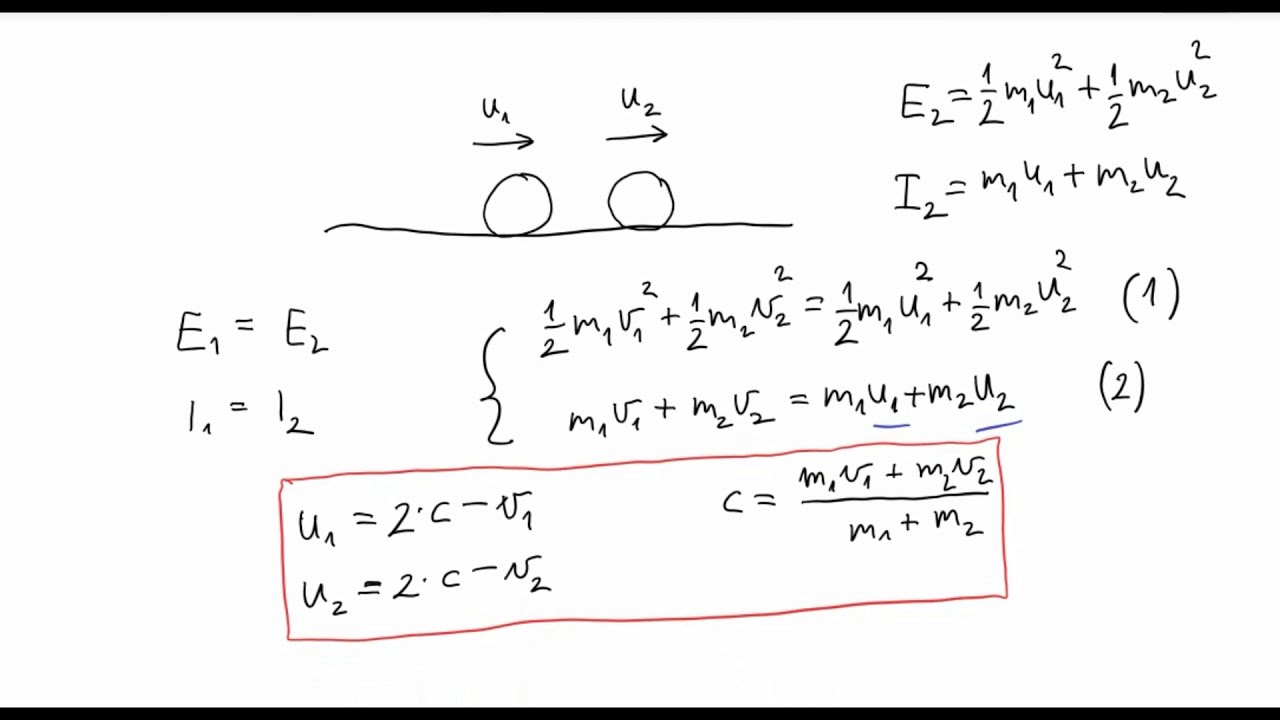 u₁ u₂
E₂ = ½ m₁u₁² + ½ m₂u₂²
I₂ = m₁u₁ + m₂u₂
E₁ = E₂
I₁ = I₂
½ m₁v₁² + ½ m₂v₂² = ½ m₁u₁² + ½ m₂u₂² (1)
m₁v₁ + m₂v₂ = m₁u₁ + m₂u₂ (2)
u₁ = 2·c − v₁
u₂ = 2·c − v₂
c = (m₁v₁ + m₂v₂) / (m₁ + m₂)